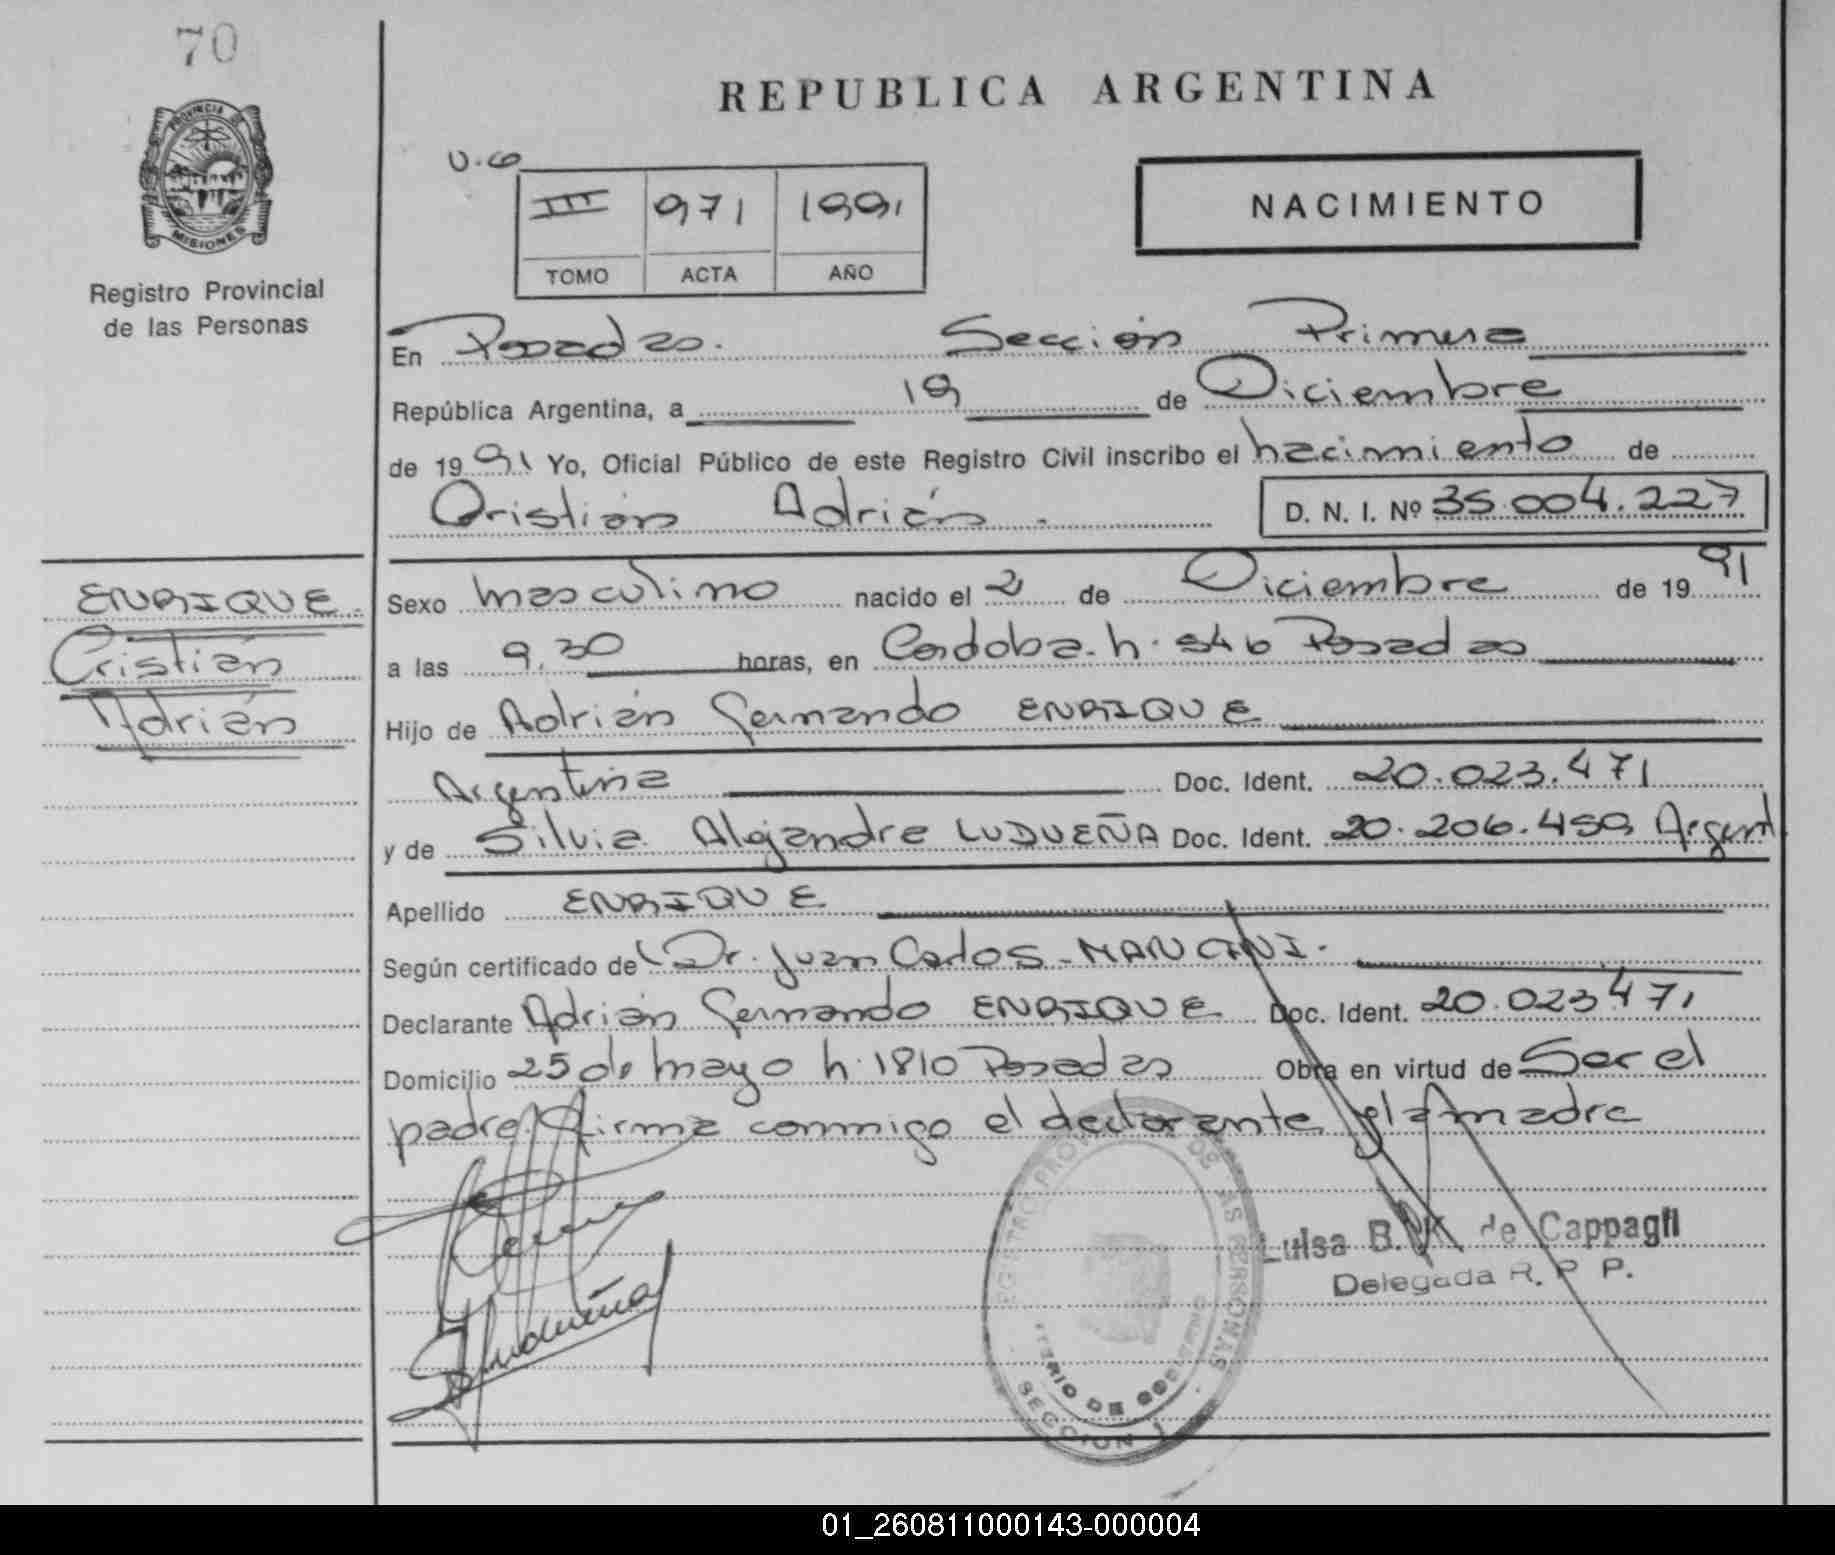 70
REPUBLICA ARGENTINA
PROVINCIA DE
MISIONES
Registro Provincial
de las Personas
III 971 1991
TOMO ACTA AÑO
NACIMIENTO
En Posadas. Sección Primera
República Argentina, a 19 de Diciembre
de 1991 Yo, Oficial Público de este Registro Civil inscribo el nacimiento de
Cristián Adrián. D. N. I. Nº 35.004.227
ENRIQUE
Cristián
Adrián
Sexo masculino nacido el 2 de Diciembre de 1991
a las 9,30 horas, en Cordoba. n. 546 Posadas
Hijo de Adrián Fernando ENRIQUE
Argentina Doc. Ident. 20.023.471
y de Silvia Alejandra LUDUEÑA Doc. Ident. 20.206.459 Argent
Apellido ENRIQUE
Según certificado de Dr. Juan Carlos - MANCINI.
Declarante Adrián Fernando ENRIQUE Doc. Ident. 20.023.471
Domicilio 25 de mayo n. 1810 Posadas Obra en virtud de Ser el
padre. Firma conmigo el declarante y la madre
Ludueña
Luisa B. de Cappagli
Delegada R. P. P.
REGISTRO PROVINCIAL DE LAS PERSONAS
MINISTERIO DE GOBIERNO
SECCION 1
01_260811000143-000004